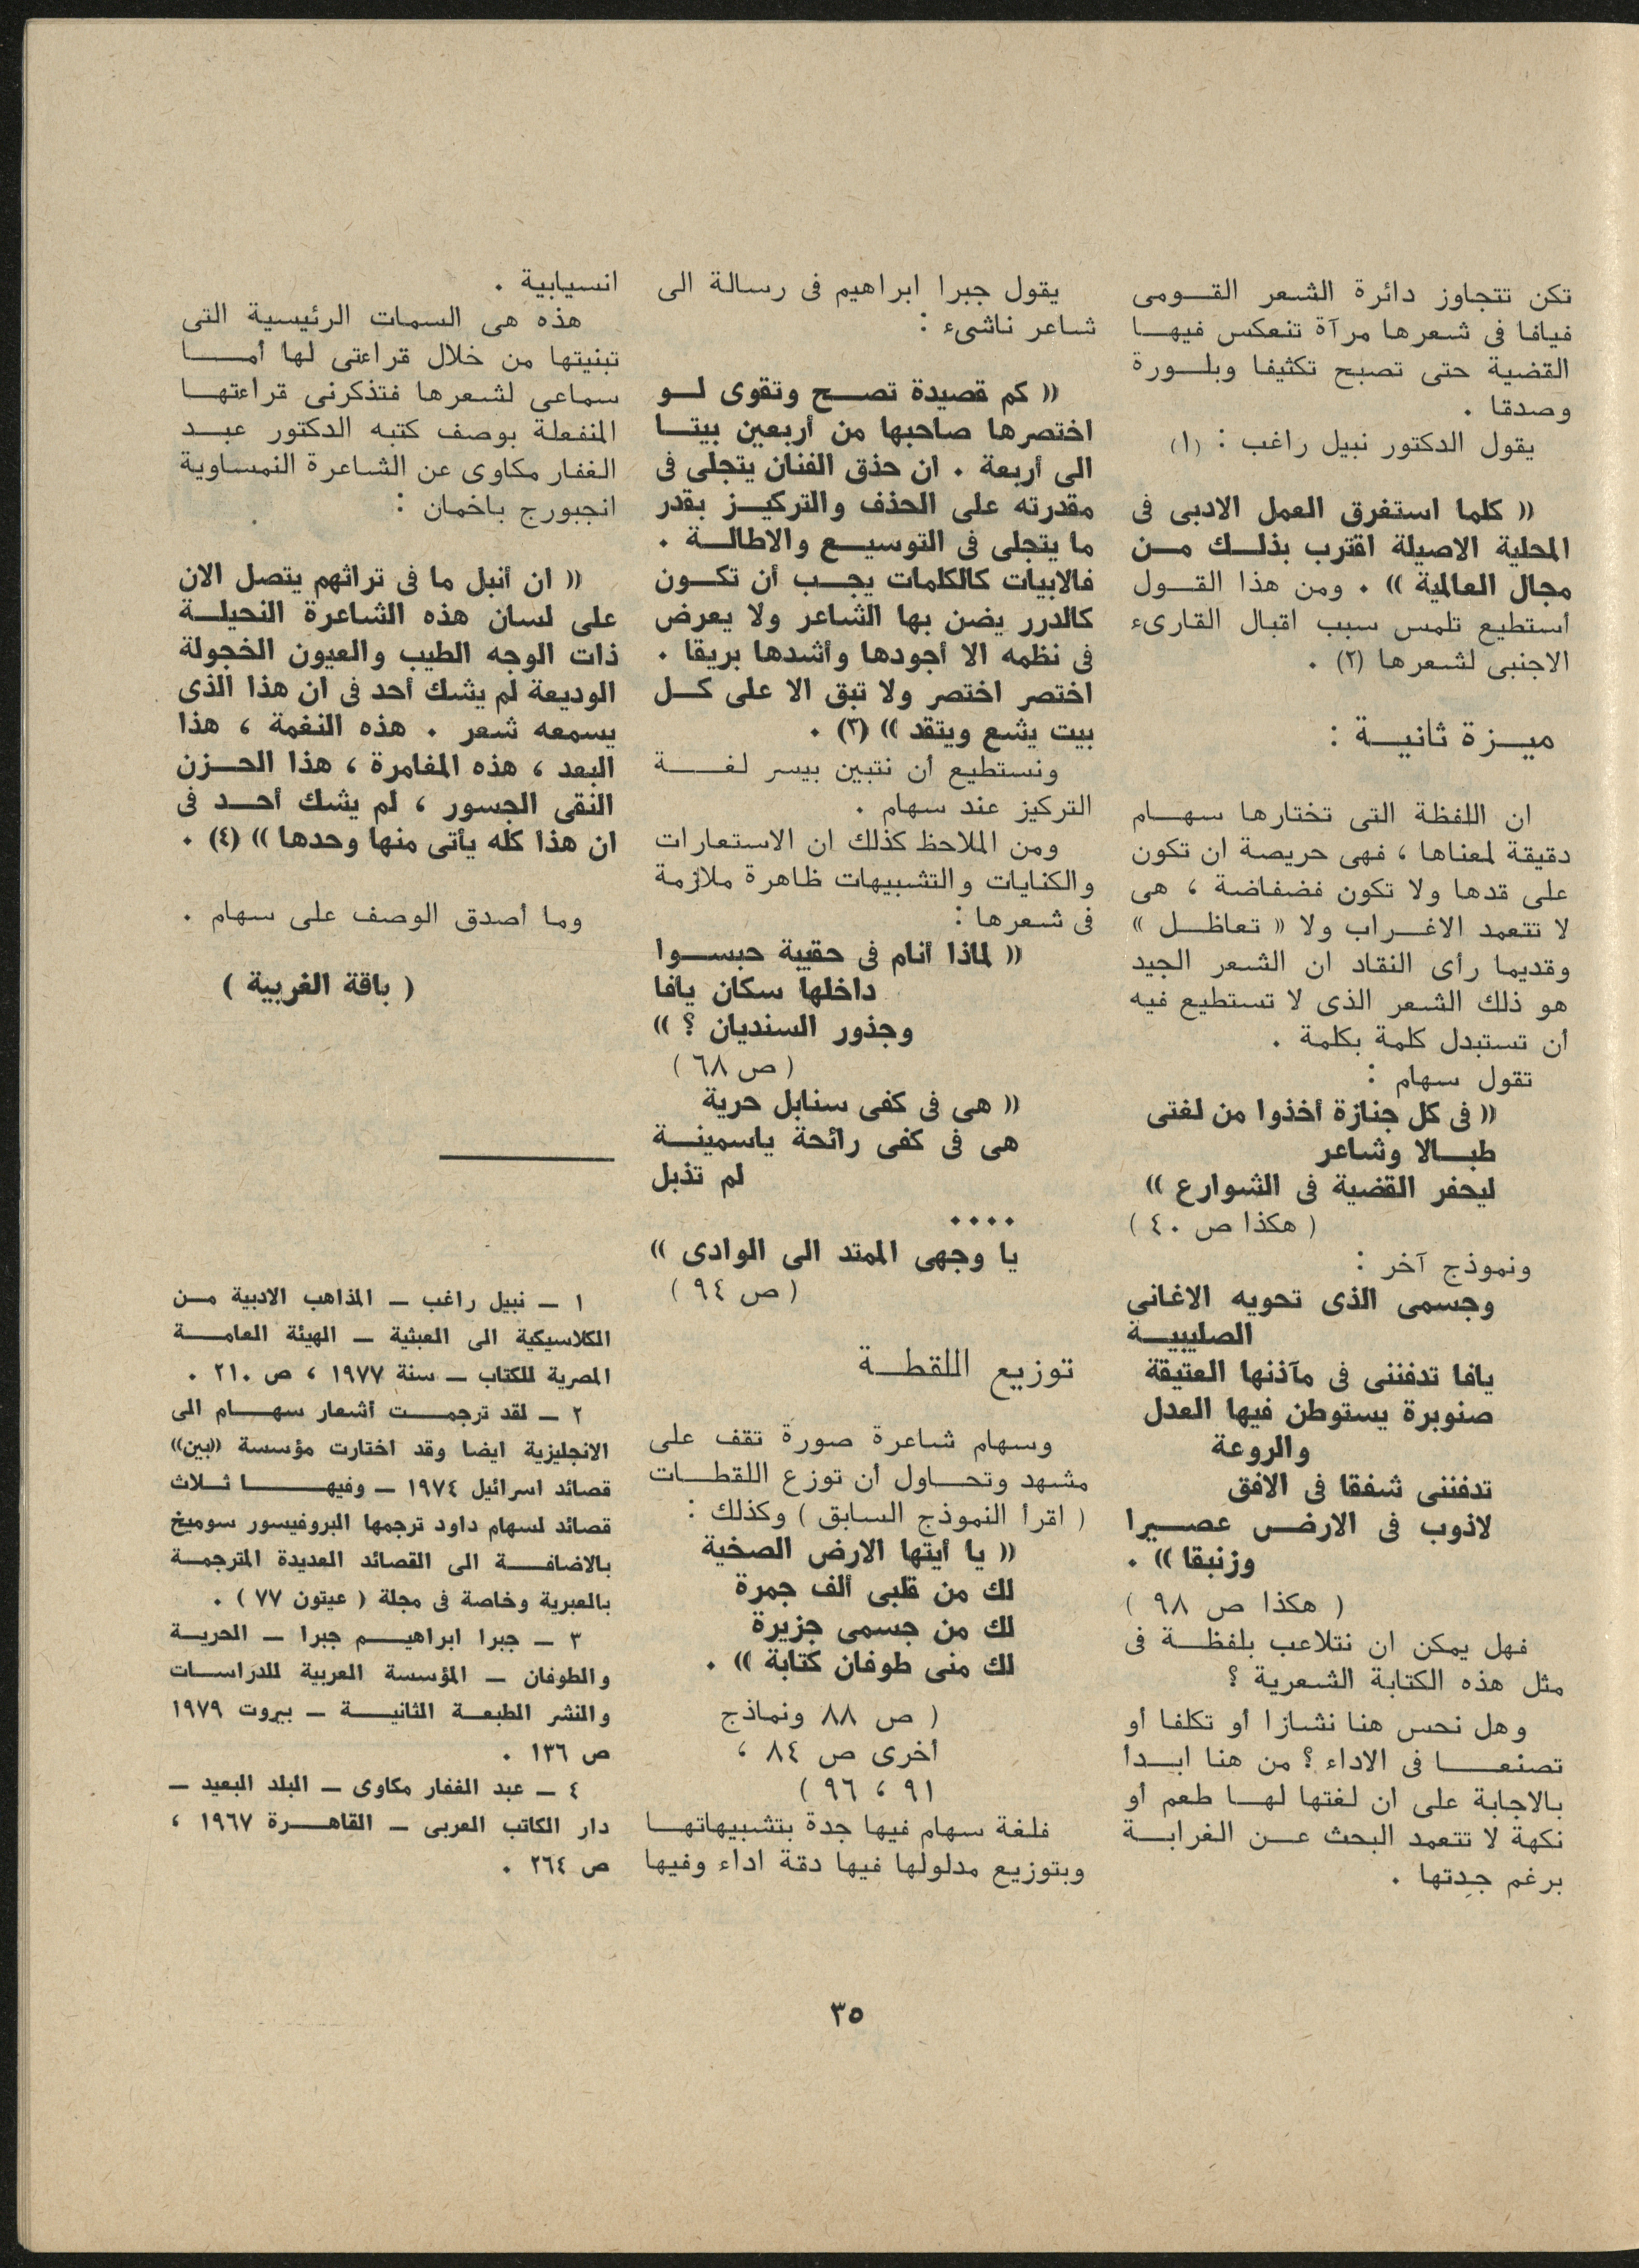 تكن تتجاوز دائرة الشعر القـومى
فيافا فى شعرها مرآة تنعكس فيهـا
القضية حتى تصبح تكثيفا وبلـورة
وصدقا .
يقول الدكتور نبيل راغب : (١)
(( كلما استغرق العمل الادبى فى
المحلية الاصيلة اقترب بذلـك مـن
مجال العالمية )) . ومن هذا القـول
أستطيع تلمس سبب اقبال القارىء
الاجنبى لشعرها (٢) .
ميـزة ثانيـة :
ان اللفظة التى تختارها سهـام
دقيقة لمعناها ، فهى حريصة ان تكون
على قدها ولا تكون فضفاضة ، هى
لا تتعمد الاغـراب ولا « تعاظـل »
وقديما رأى النقاد ان الشعر الجيد
هو ذلك الشعر الذى لا تستطيع فيه
أن تستبدل كلمة بكلمة .
تقول سهام :
(( فى كل جنازة أخذوا من لغتى
طبـالا وشاعر
ليحفر القضية فى الشوارع ))
( هكذا ص ٤٠ )
ونموذج آخر :
وجسمى الذى تحويه الاغانى
الصليبيـة
يافا تدفننى فى مآذنها العتيقة
صنوبرة يستوطن فيها العدل
والروعة
تدفننى شفقا فى الافق
لاذوب فى الارض عصيـرا
وزنبقا )) .
( هكذا ص ٩٨ )
فهل يمكن ان نتلاعب بلفظـة فى
مثل هذه الكتابة الشعرية ؟
وهل نحس هنا نشازا أو تكلفا أو
تصنعـا فى الاداء ؟ من هنا ابـدأ
بالاجابة على ان لغتها لهـا طعم أو
نكهة لا تتعمد البحث عـن الغرابـة
برغم جِدتها .
يقول جبرا ابراهيم فى رسالة الى
شاعر ناشىء :
(( كم قصيدة تصـح وتقوى لـو
اختصرها صاحبها من أربعين بيتـا
الى أربعة . ان حذق الفنان يتجلى فى
مقدرته على الحذف والتركيـز بقدر
ما يتجلى فى التوسيـع والاطالـة .
فالابيات كالكلمات يجـب أن تكـون
كالدرر يضن بها الشاعر ولا يعرض
فى نظمه الا أجودها وأشدها بريقا .
اختصر اختصر ولا تبق الا على كـل
بيت يشع ويتقد )) (٣) .
ونستطيع أن نتبين بيسر لغـة
التركيز عند سهام .
ومن الملاحظ كذلك ان الاستعارات
والكنايات والتشبيهات ظاهرة ملازمة
فى شعرها :
(( لماذا أنام فى حقيبة حبسـوا
داخلها سكان يافا
وجذور السنديان ؟ ))
( ص ٦٨ )
(( هى فى كفى سنابل حرية
هى فى كفى رائحة ياسمينـة
لم تذبل
....
يا وجهى الممتد الى الوادى ))
( ص ٩٤ )
توزيع اللقطـة
وسهام شاعرة صورة تقف على
مشهد وتحـاول أن توزع اللقطـات
( اقرأ النموذج السابق ) وكذلك :
(( يا أيتها الارض الصخية
لك من قلبى ألف جمرة
لك من جسمى جزيرة
لك منى طوفان كتابة )) .
( ص ٨٨ ونماذج
أخرى ص ٨٤ ،
٩١ ، ٩٦ )
فلغة سهام فيها جدة بتشبيهاتهـا
وبتوزيع مدلولها فيها دقة اداء وفيها
انسيابية .
هذه هى السمات الرئيسية التى
تبنيتها من خلال قراءتى لها أمـا
سماعى لشعرها فتذكرنى قراءتهـا
المنفعلة بوصف كتبه الدكتور عبـد
الغفار مكاوى عن الشاعرة النمساوية
انجبورج باخمان :
(( ان أنبل ما فى تراثهم يتصل الان
على لسان هذه الشاعرة النحيلـة
ذات الوجه الطيب والعيون الخجولة
الوديعة لم يشك أحد فى ان هذا الذى
يسمعه شعر . هذه النغمة ، هذا
البعد ، هذه المغامرة ، هذا الحـزن
النقى الجسور ، لم يشك أحـد فى
ان هذا كله يأتى منها وحدها )) (٤) .
وما أصدق الوصف على سهام .
( باقة الغربية )
١ ـ نبيل راغب ـ المذاهب الادبية مـن
الكلاسيكية الى العبثية ـ الهيئة العامـة
المصرية للكتاب ـ سنة ١٩٧٧ ، ص ٢١٠ .
٢ ـ لقد ترجمـت أشعار سهـام الى
الانجليزية ايضا وقد اختارت مؤسسة ((بين))
قصائد اسرائيل ١٩٧٤ ـ وفيهـا ثـلاث
قصائد لسهام داود ترجمها البروفيسور سوميخ
بالاضافـة الى القصائد العديدة المترجمـة
بالعبرية وخاصة فى مجلة ( عيتون ٧٧ ) .
٣ ـ جبرا ابراهيـم جبرا ـ الحريـة
والطوفان ـ المؤسسة العربية للدراسـات
والنشر الطبعـة الثانيـة ـ بيروت ١٩٧٩
ص ١٣٦ .
٤ ـ عبد الغفار مكاوى ـ البلد البعيد ـ
دار الكاتب العربى ـ القاهـرة ١٩٦٧ ،
ص ٢٦٤ .
٣٥